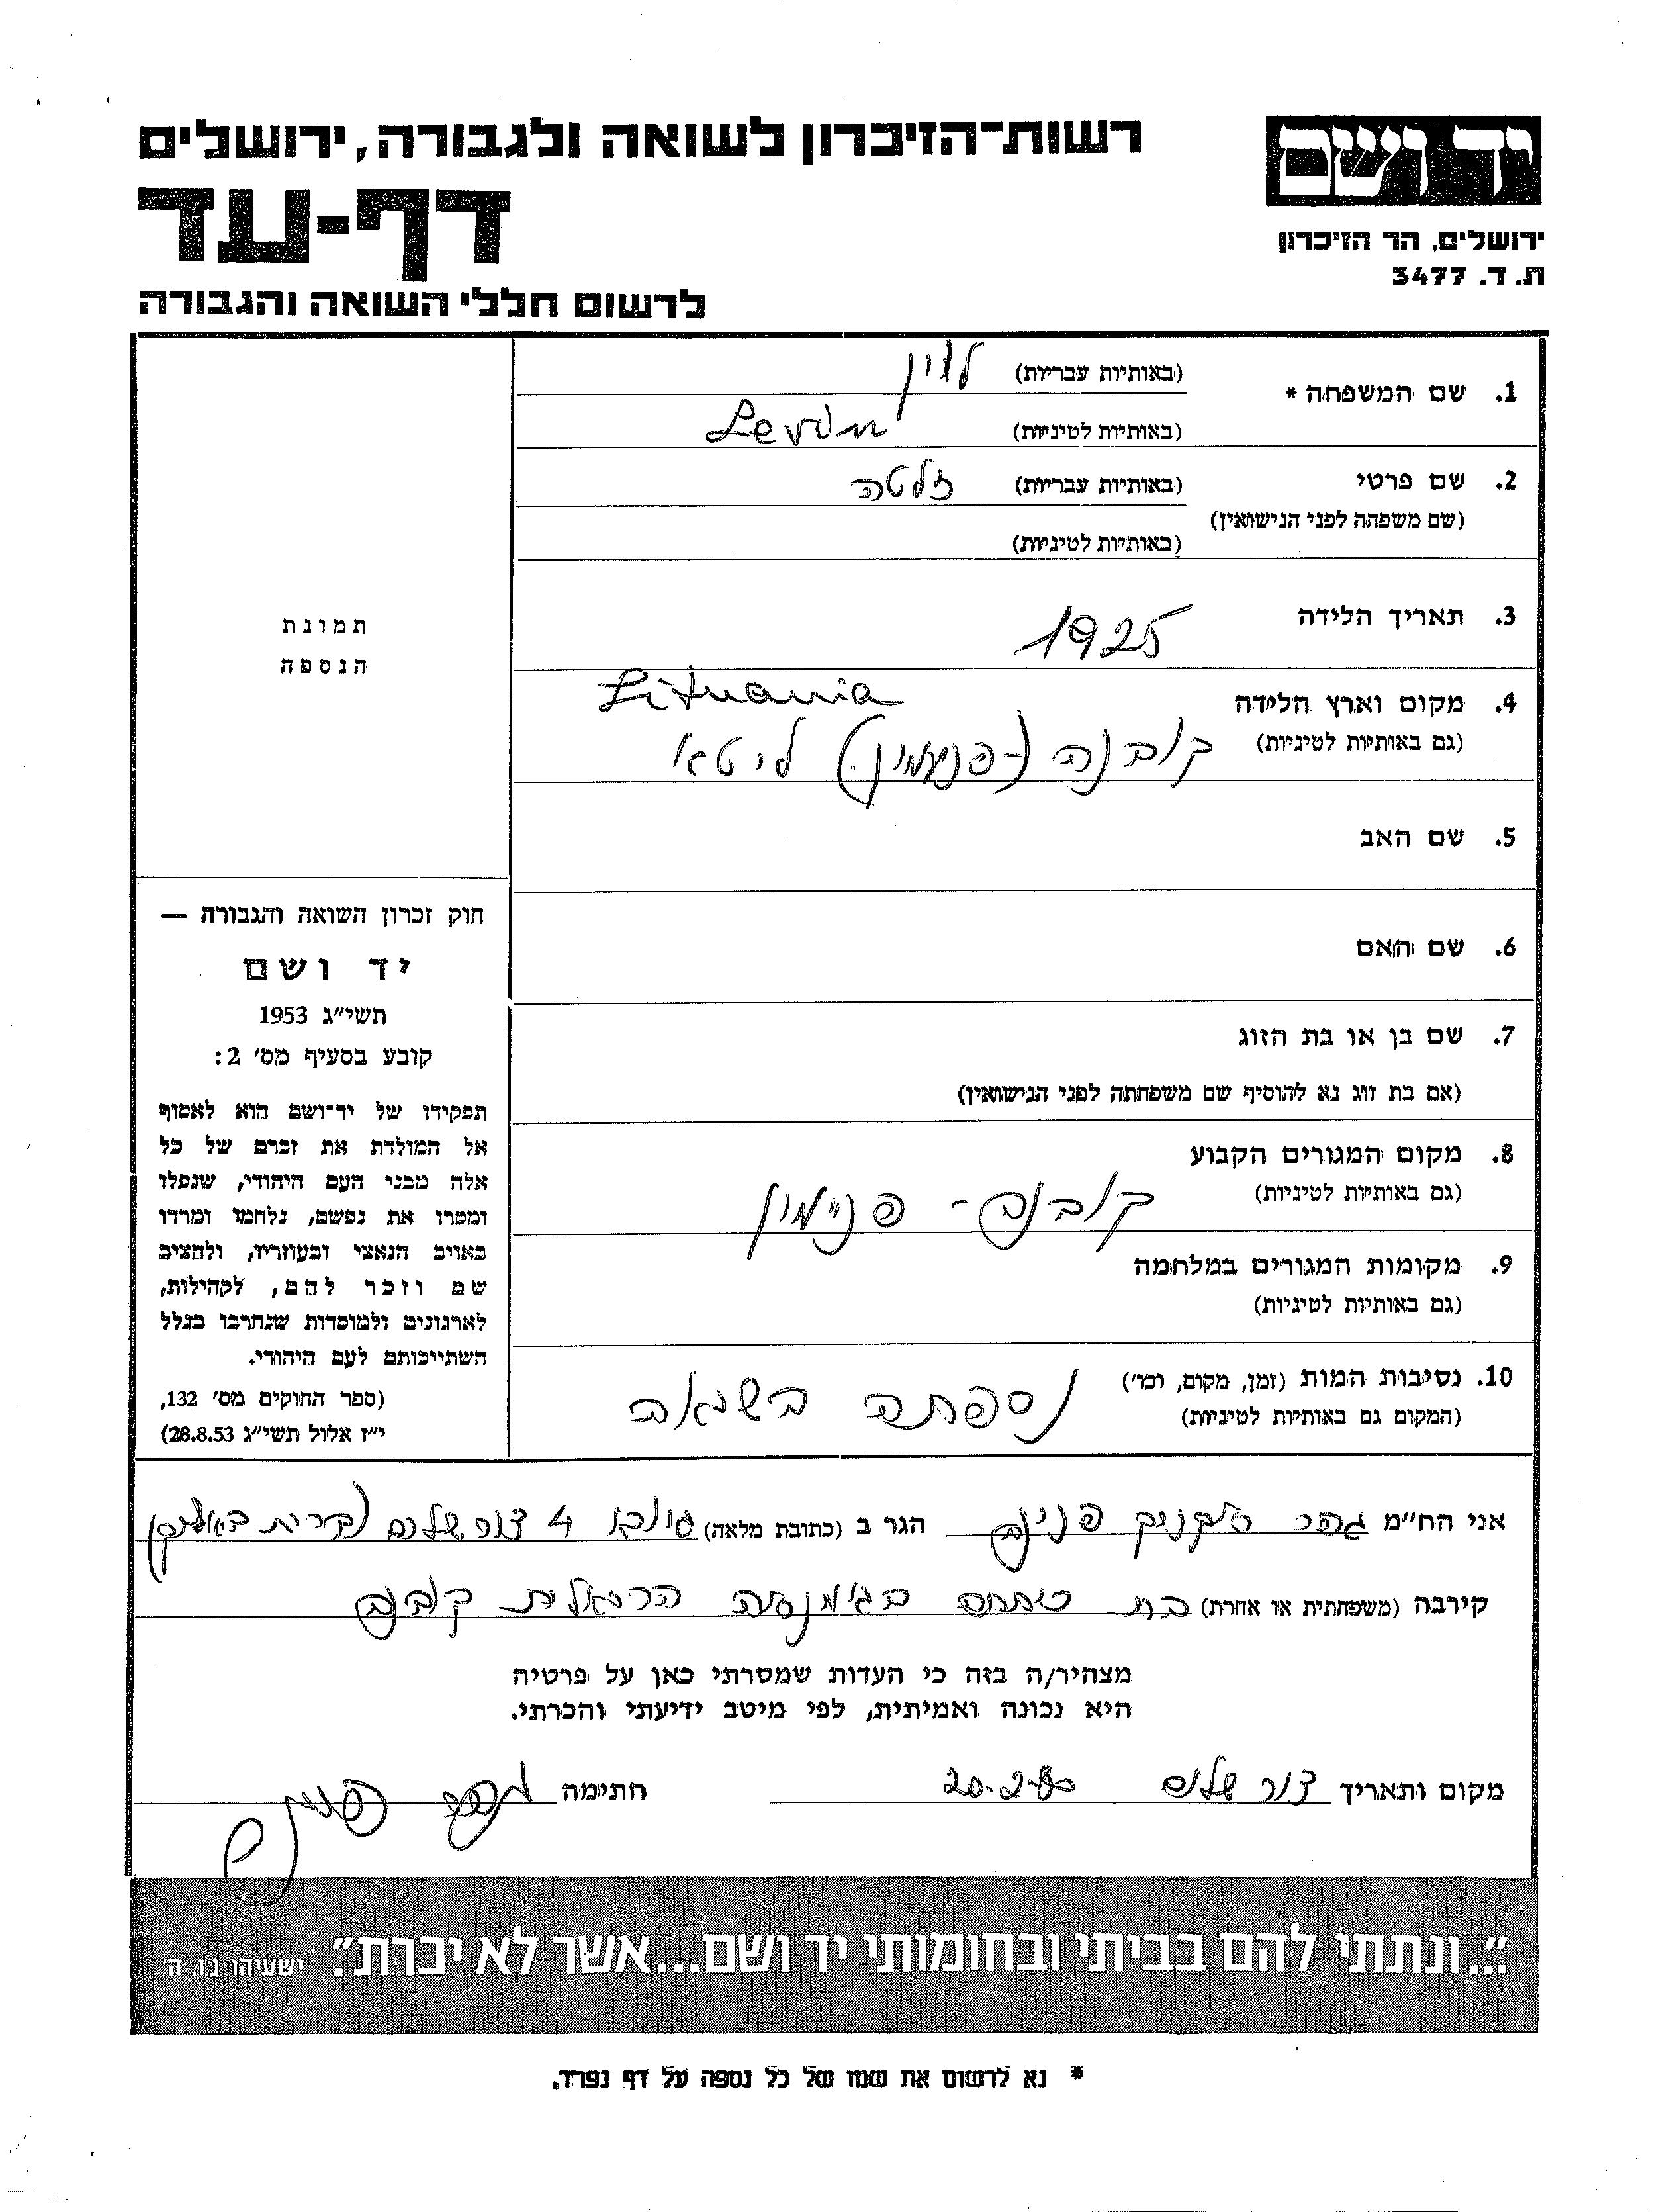 יד ושם
ירושלים, הר הזיכרון
ת. ד. 3477
רשות-הזיכרון לשואה ולגבורה, ירושלים
דף-עד
לרשום חללי השואה והגבורה
1. שם המשפחה * (באותיות עבריות) לוין
(באותיות לטיניות) Levin
2. שם פרטי (באותיות עבריות) זלטה
(שם משפחה לפני הנישואין)
(באותיות לטיניות)
3. תאריך הלידה 1925
4. מקום וארץ הלידה Lituania
(גם באותיות לטיניות) קובנה ליטא
5. שם האב
6. שם האם
7. שם בן או בת הזוג
(אם בת זוג נא להוסיף שם משפחתה לפני הנישואין)
8. מקום המגורים הקבוע
(גם באותיות לטיניות) קובנה - פניימון
9. מקומות המגורים במלחמה
(גם באותיות לטיניות)
10. נסיבות המות (זמן, מקום, וכו') נספתה בשואה
(המקום גם באותיות לטיניות)
תמונת
הנספה
חוק זכרון השואה והגבורה —
יד ושם
תשי"ג 1953
קובע בסעיף מס' 2:
תפקידו של יד-ושם הוא לאסוף
אל המולדת את זכרם של כל
אלה מבני העם היהודי, שנפלו
ומסרו את נפשם, נלחמו ומרדו
באויב הנאצי ובעוזריו, ולהציב
שם וזכר להם, לקהילות,
לארגונים ולמוסדות שנחרבו בגלל
השתייכותם לעם היהודי.
(ספר החוקים מס' 132,
י"ז אלול תשי"ג 28.8.53)
אני הח"מ פנינה הגר ב (כתובת מלאה) 4 צור שלום
קירבה (משפחתית או אחרת) בת כיתתה בגימנסיה הריאלית קובנה
מצהיר/ה בזה כי העדות שמסרתי כאן על פרטיה
היא נכונה ואמיתית, לפי מיטב ידיעתי והכרתי.
מקום ותאריך צור שלום חתימה
"...ונתתי להם בביתי ובחומותי יד ושם...אשר לא יכרת". ישעיהו נו, ה'
* נא לרשום את שמו של כל נספה על דף נפרד.